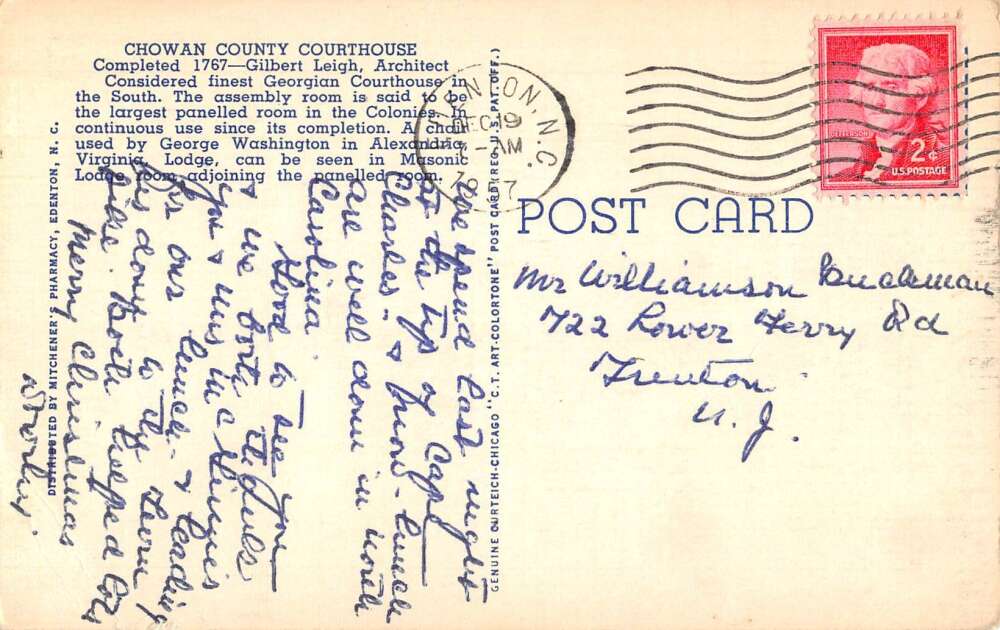 CHOWAN COUNTY COURTHOUSE
Completed 1767—Gilbert Leigh, Architect
Considered finest Georgian Courthouse in
the South. The assembly room is said to be
the largest panelled room in the Colonies. In
continuous use since its completion. A chair
used by George Washington in Alexandria,
Virginia, Lodge, can be seen in Masonic
Lodge room adjoining the panelled room.
DISTRIBUTED BY MITCHENER'S PHARMACY, EDENTON, N. C.
GENUINE CURTEICH-CHICAGO "C. T. ART-COLORTONE" POST CARD (REG. U. S. PAT. OFF.)
EDENTON, N.C.
DEC 19
AM
1957
JEFFERSON
2¢
U.S. POSTAGE
POST CARD
Mr Williamson Buckman
722 Lower Ferry Rd
Trenton
N. J.
We spend last night
at the tip of Cape
Charles & now - lunch
are well down in North
Carolina
Good to see you
& we both
you & 
for our lunch - &
his dory to
like. Both helped lots
Merry Christmas